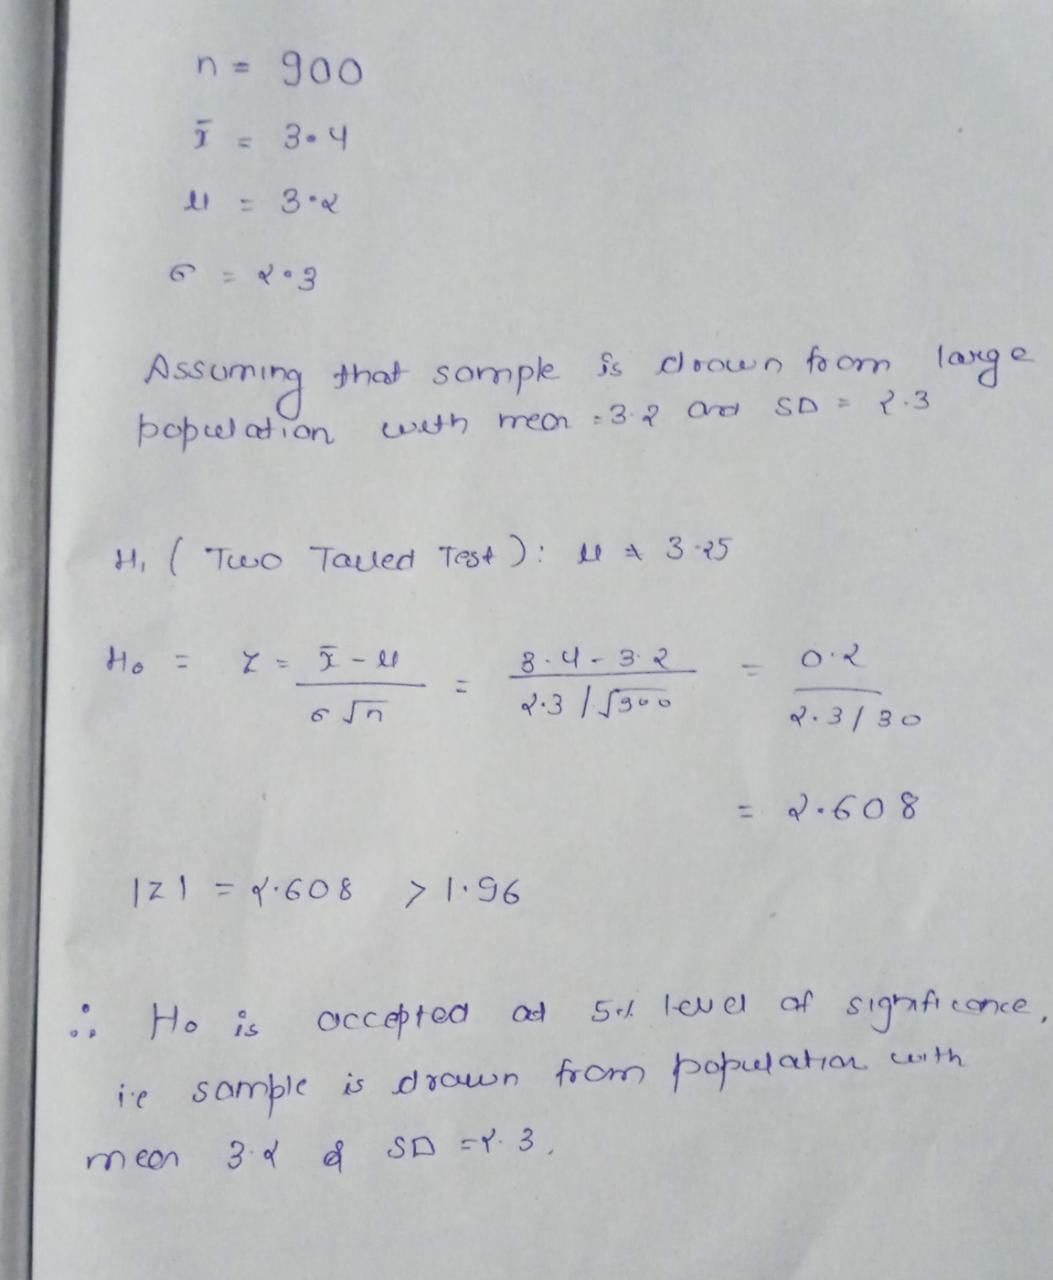 n = 900
x̄ = 3.4
μ = 3.2
σ = 2.3
Assuming that sample is drawn from large
population with mean = 3.2 and SD = 2.3
H₁ ( Two Tailed Test ) : μ ≠ 3.25
H₀ = Z = x̄ - μ / σ √n = 3.4 - 3.2 / 2.3 / √900 = 0.2 / 2.3 / 30
= 2.608
|Z| = 2.608 > 1.96
∴ H₀ is accepted at 5% level of significance,
i.e sample is drawn from population with
mean 3.2 & SD = 2.3.